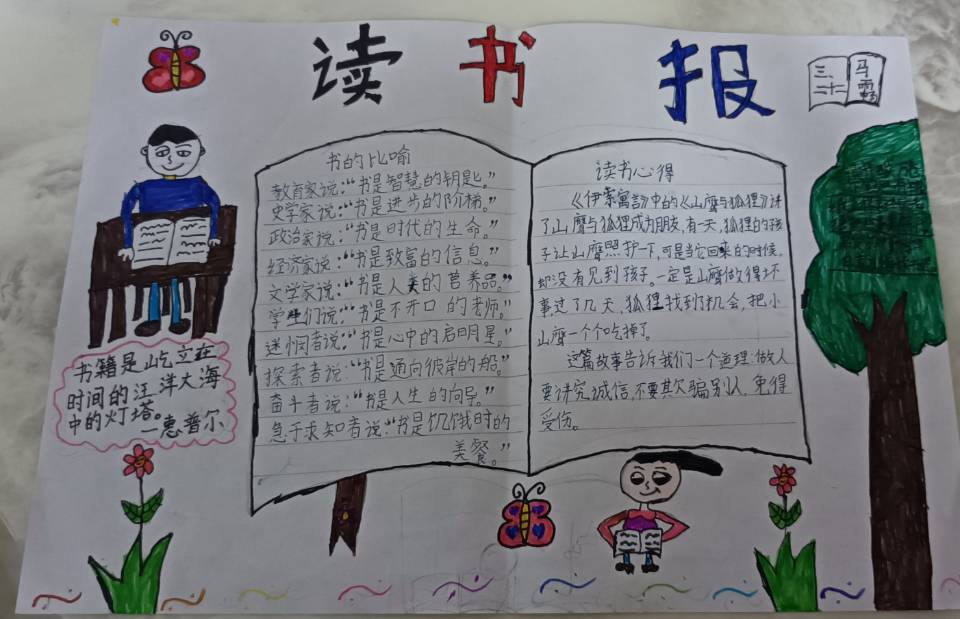 读书报
三、二十
马雪畅
书的比喻
教育家说:“书是智慧的钥匙。”
史学家说:“书是进步的阶梯。”
政治家说:“书是时代的生命。”
经济家说:“书是致富的信息。”
文学家说:“书是人类的营养品。”
学生们说:“书是不开口的老师。”
迷惘者说:“书是心中的启明星。”
探索者说:“书是通向彼岸的船。”
奋斗者说:“书是人生的向导。”
急于求知者说:“书是饥饿时的
美餐。”
读书心得
《伊索寓言》中的《山鹰与狐狸》讲
了山鹰与狐狸成为朋友,有一天,狐狸的孩
子让山鹰照护一下,可是当它回来的时候,
却没有见到孩子。一定是山鹰做得坏
事过了几天,狐狸找到机会,把小
山鹰一个个吃掉了。
这篇故事告诉我们一个道理:做人
要讲究诚信,不要欺骗别人,免得
受伤。
书籍是屹立在
时间的汪洋大海
中的灯塔。
—惠普尔